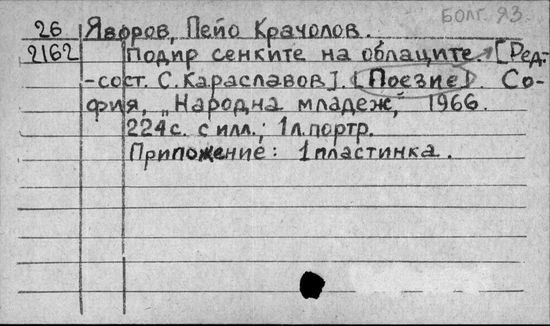 БОЛГ. ЯЗ.
26 Яворов, Пейо Крачолов.
2162 Подир сенките на облаците. [Ред.
-сост. С. Караславов]. [Поезие]. Со-
фия, „Народна младеж," 1966.
224с. с илл.; 1л. портр.
Приложение: 1 пластинка.